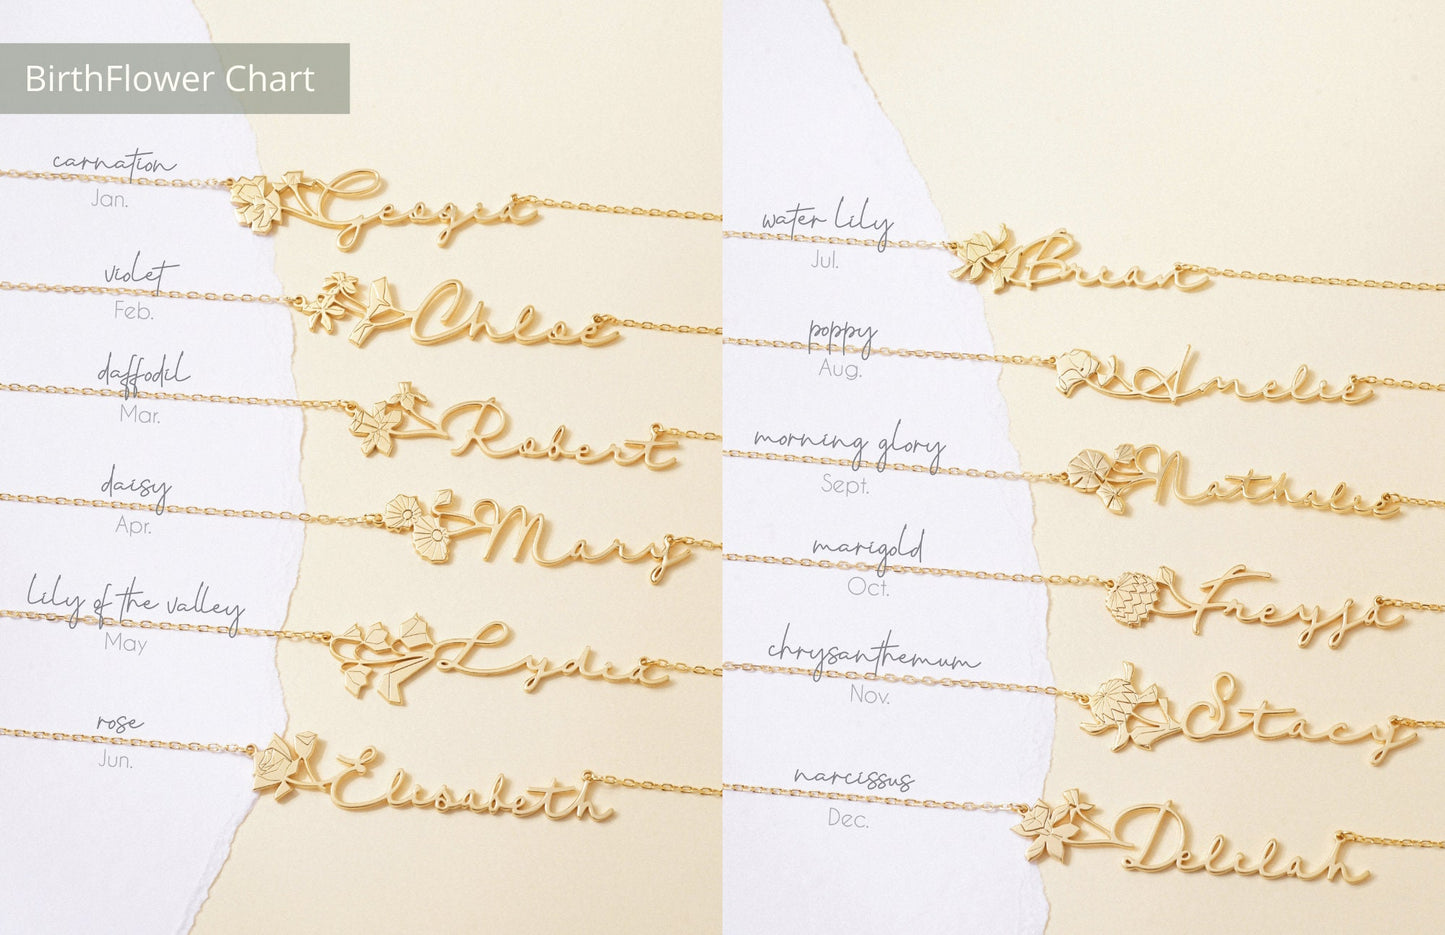 BirthFlower Chart
carnation
Jan.
Georgia
violet
Feb.
Chloe
daffodil
Mar.
Robert
daisy
Apr.
Mary
lily of the valley
May
Lydia
rose
Jun.
Elisabeth
water lily
Jul.
Breean
poppy
Aug.
Amelie
morning glory
Sept.
Nathalie
marigold
Oct.
Freyja
chrysanthemum
Nov.
Stacy
narcissus
Dec.
Delilah